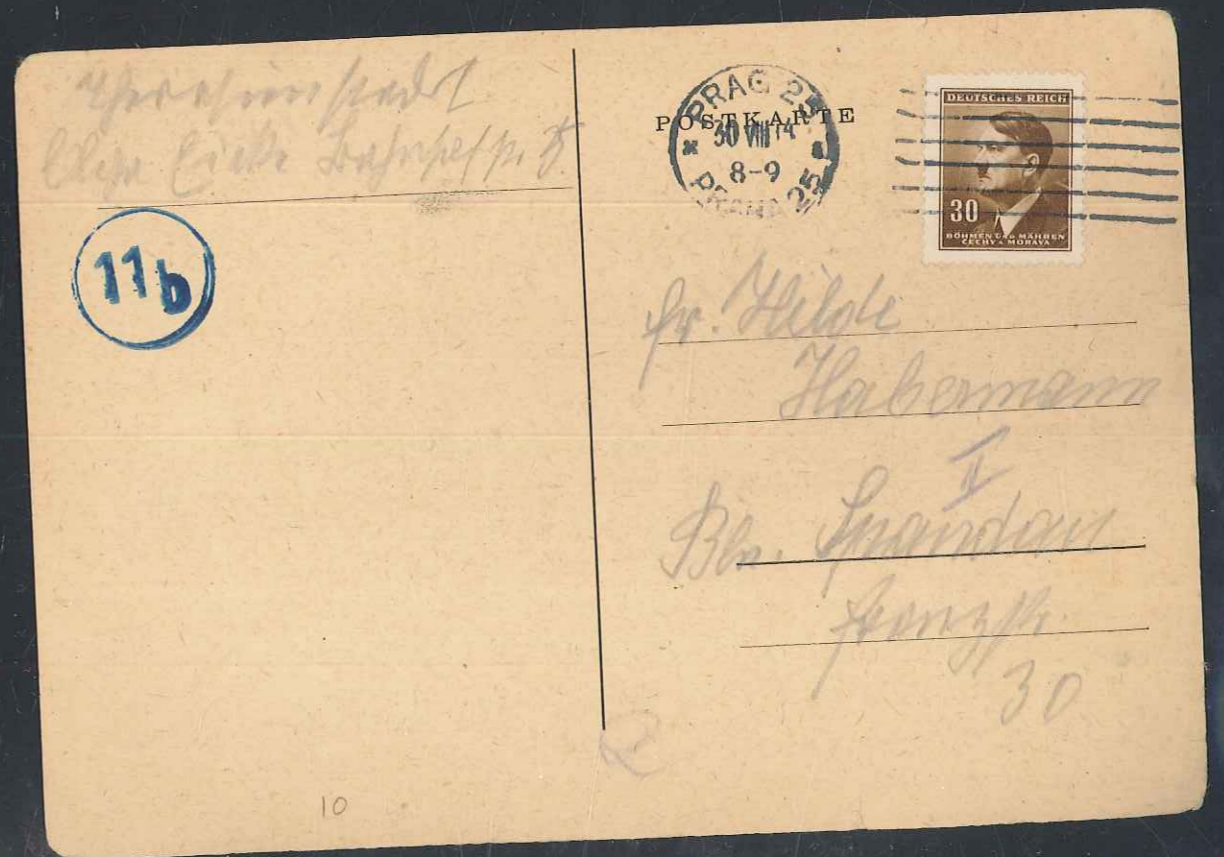 Theresienstadt
Bahnhofstr.
11b
POSTKARTE
PRAG 25
30 VIII 4
8-9
PRAHA 25
DEUTSCHES REICH
30
BÖHMEN UND MÄHREN
ČECHY A MORAVA
Fr. Hilde
Habermann
II
Bln. Spandau
30
10